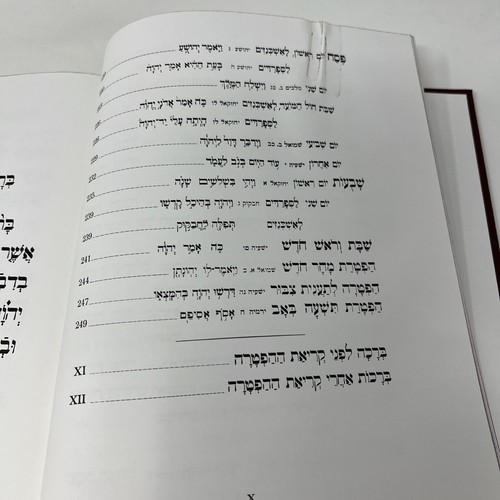 פסח יום ראשון, לאשכנזים יהושע ג ויאמר יהושע
לספרדים יהושע ה בעת ההיא אמר יהוה
יום שני מלכים ב, כג וישלח המלך
שבת חול המועד, לאשכנזים יחזקאל לו כה אמר אדני יהוה
לספרדים יחזקאל לז היתה עלי יד־יהוה
יום שביעי שמואל ב, כב וידבר דוד ליהוה
יום אחרון ישעיה י עוד היום בנב לעמד 232
שבועות יום ראשון יחזקאל א ויהי בשלשים שנה 235
יום שני לספרדים חבקוק ב ויהוה בהיכל קדשו 239
לאשכנזים תפלה לחבקוק 239
שבת וראש חודש ישעיה סו כה אמר יהוה 241
הפטרת מחר חדש שמואל א, כ ויאמר־לו יהונתן 244
הפטרה לתענית צבור ישעיה נה דרשו יהוה בהמצאו 247
הפטרת תשעה באב ירמיה ח אסף אסיפם 249
ברכה לפני קריאת ההפטרה XI
ברכות אחרי קריאת ההפטרה XII
X